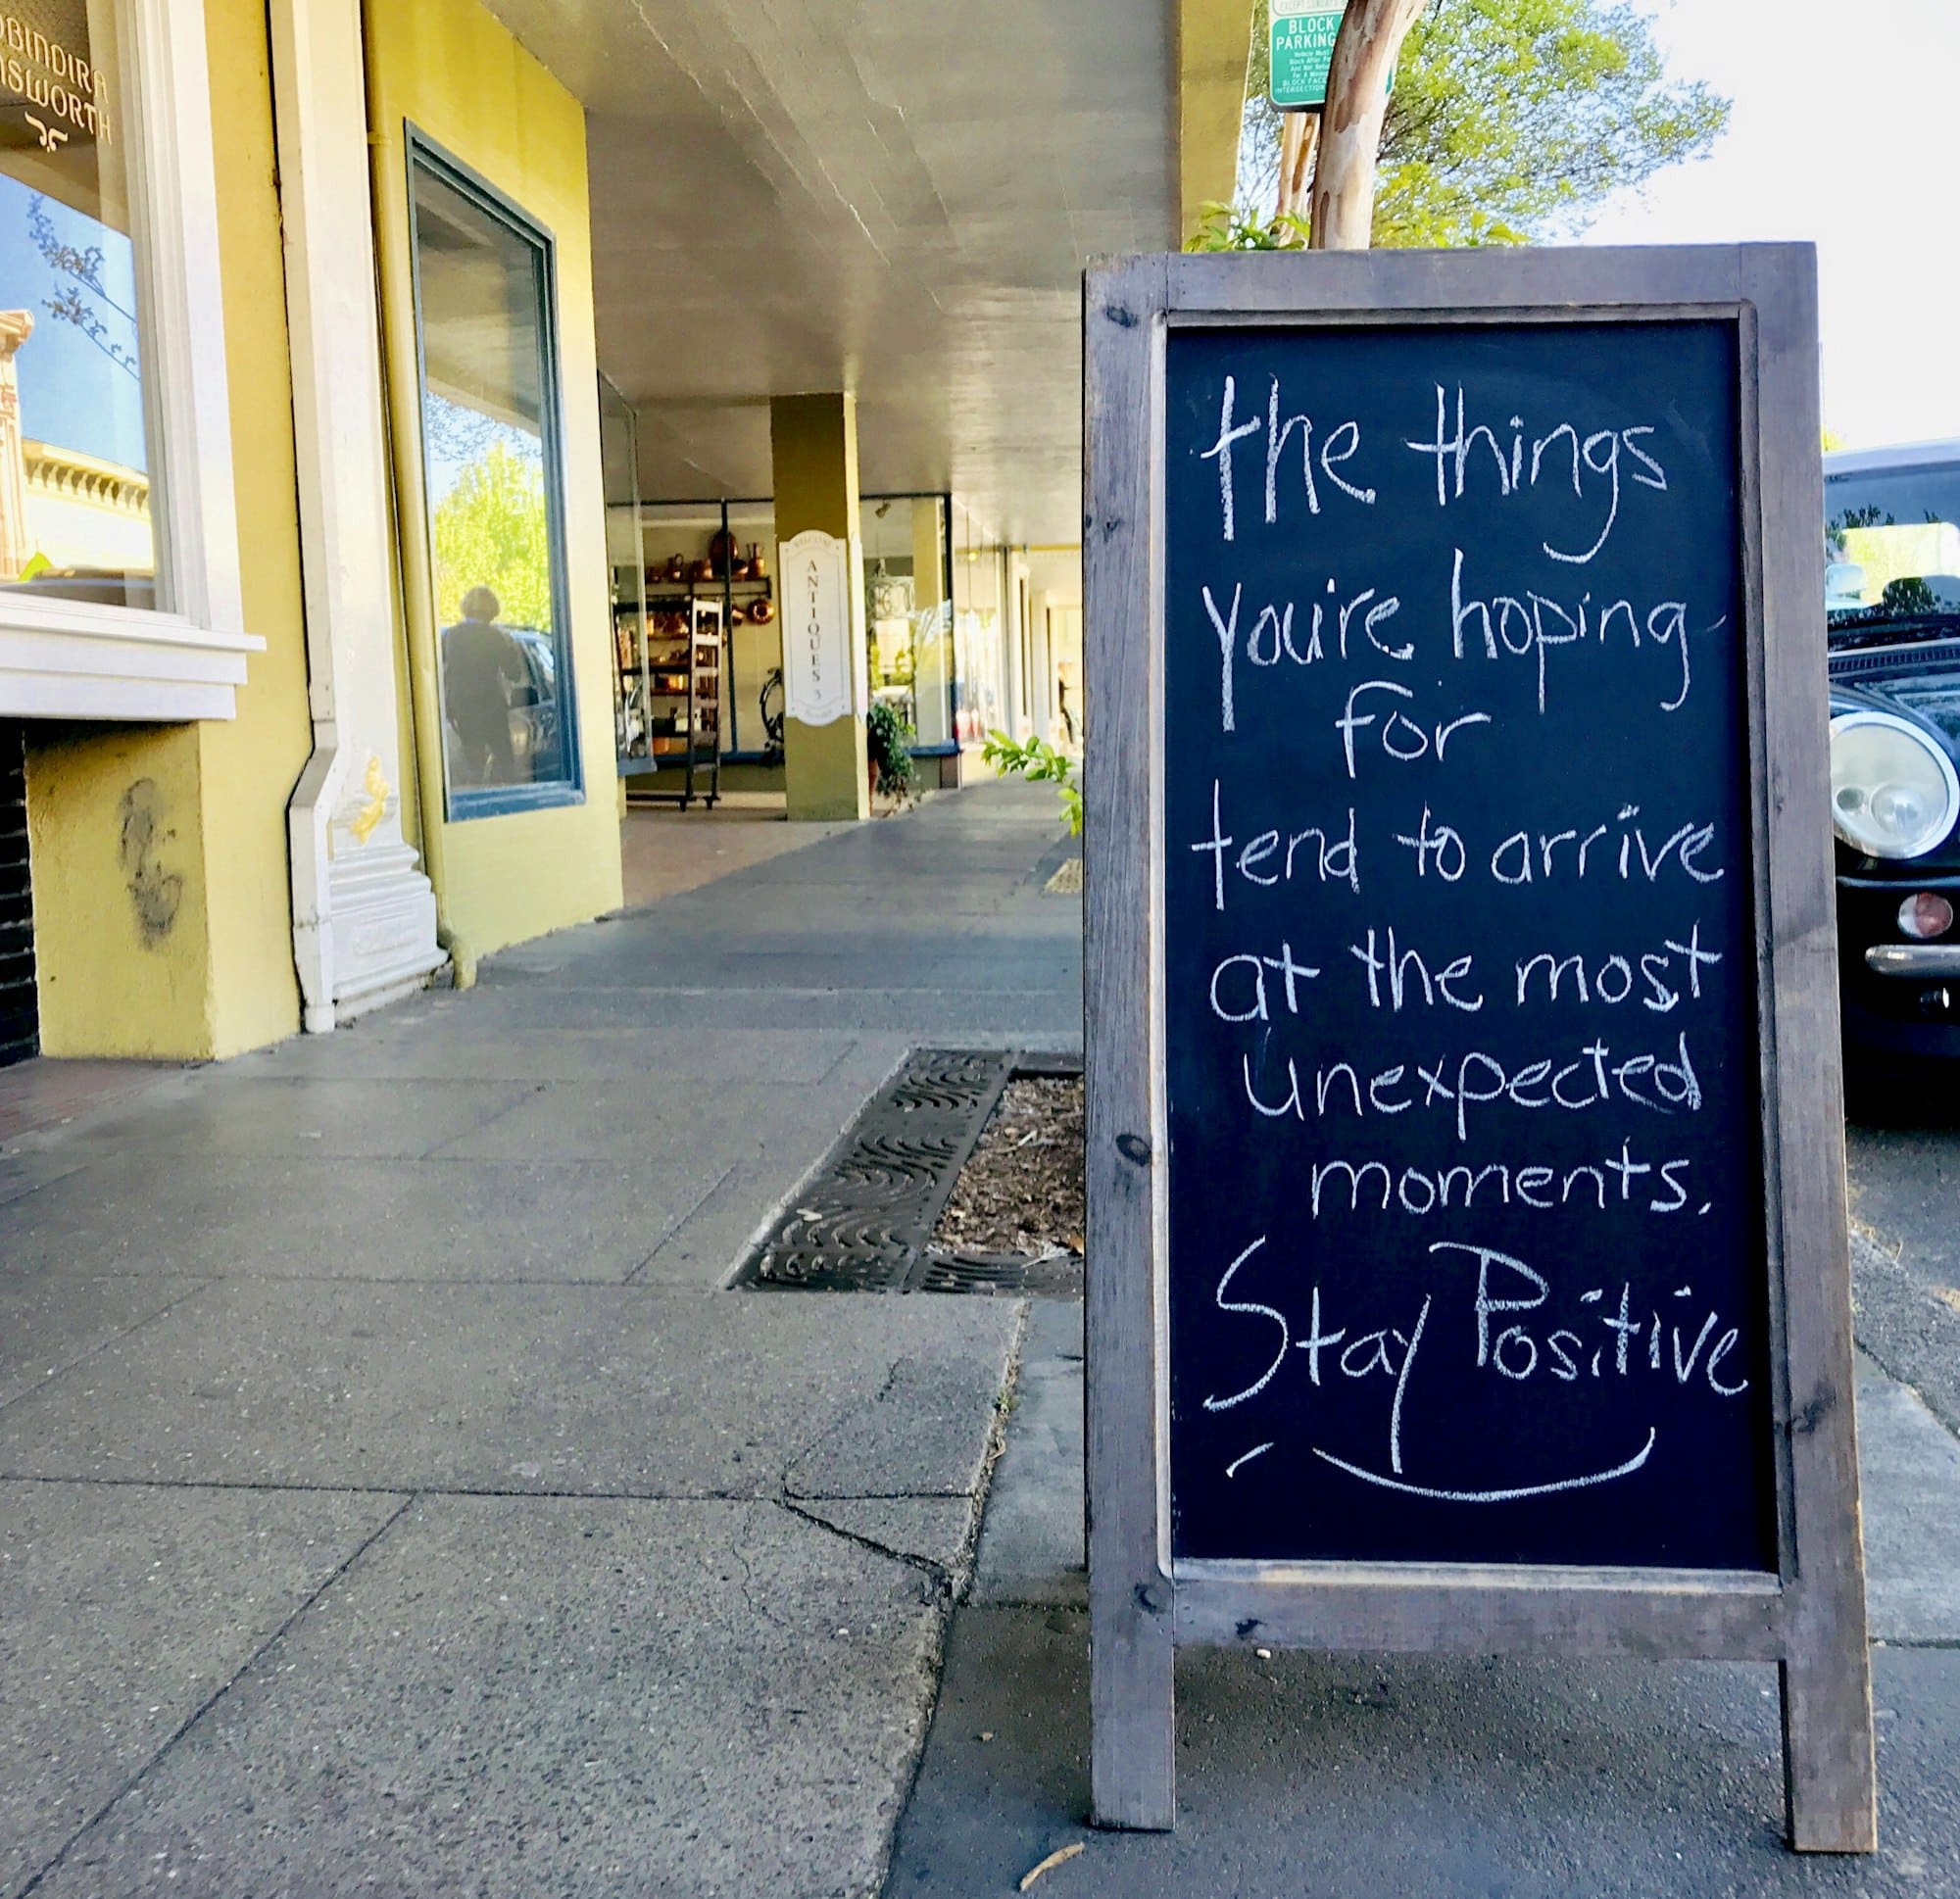 BLOCK
PARKING
the things
you're hoping
for
tend to arrive
at the most
unexpected
moments.
Stay Positive
WELCOME
ANTIQUES